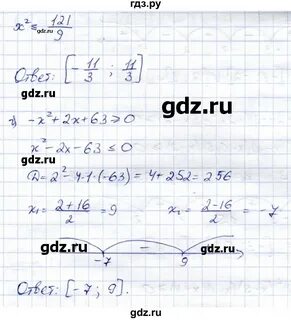 гдз.ру
x² ≤ 121/9
Ответ: [-11/3 ; 11/3]
gdz.ru
г) -x²+2x+63 ⩾ 0
x²-2x-63 ≤ 0
gdz.ru
D = 2²-4·1·(-63) = 4+252 = 256
x₁ = (2+16)/2 = 9 x₂ = (2-16)/2 = -7
gdz.ru
-
-7 9
Ответ: [-7 ; 9].
gdz.ru